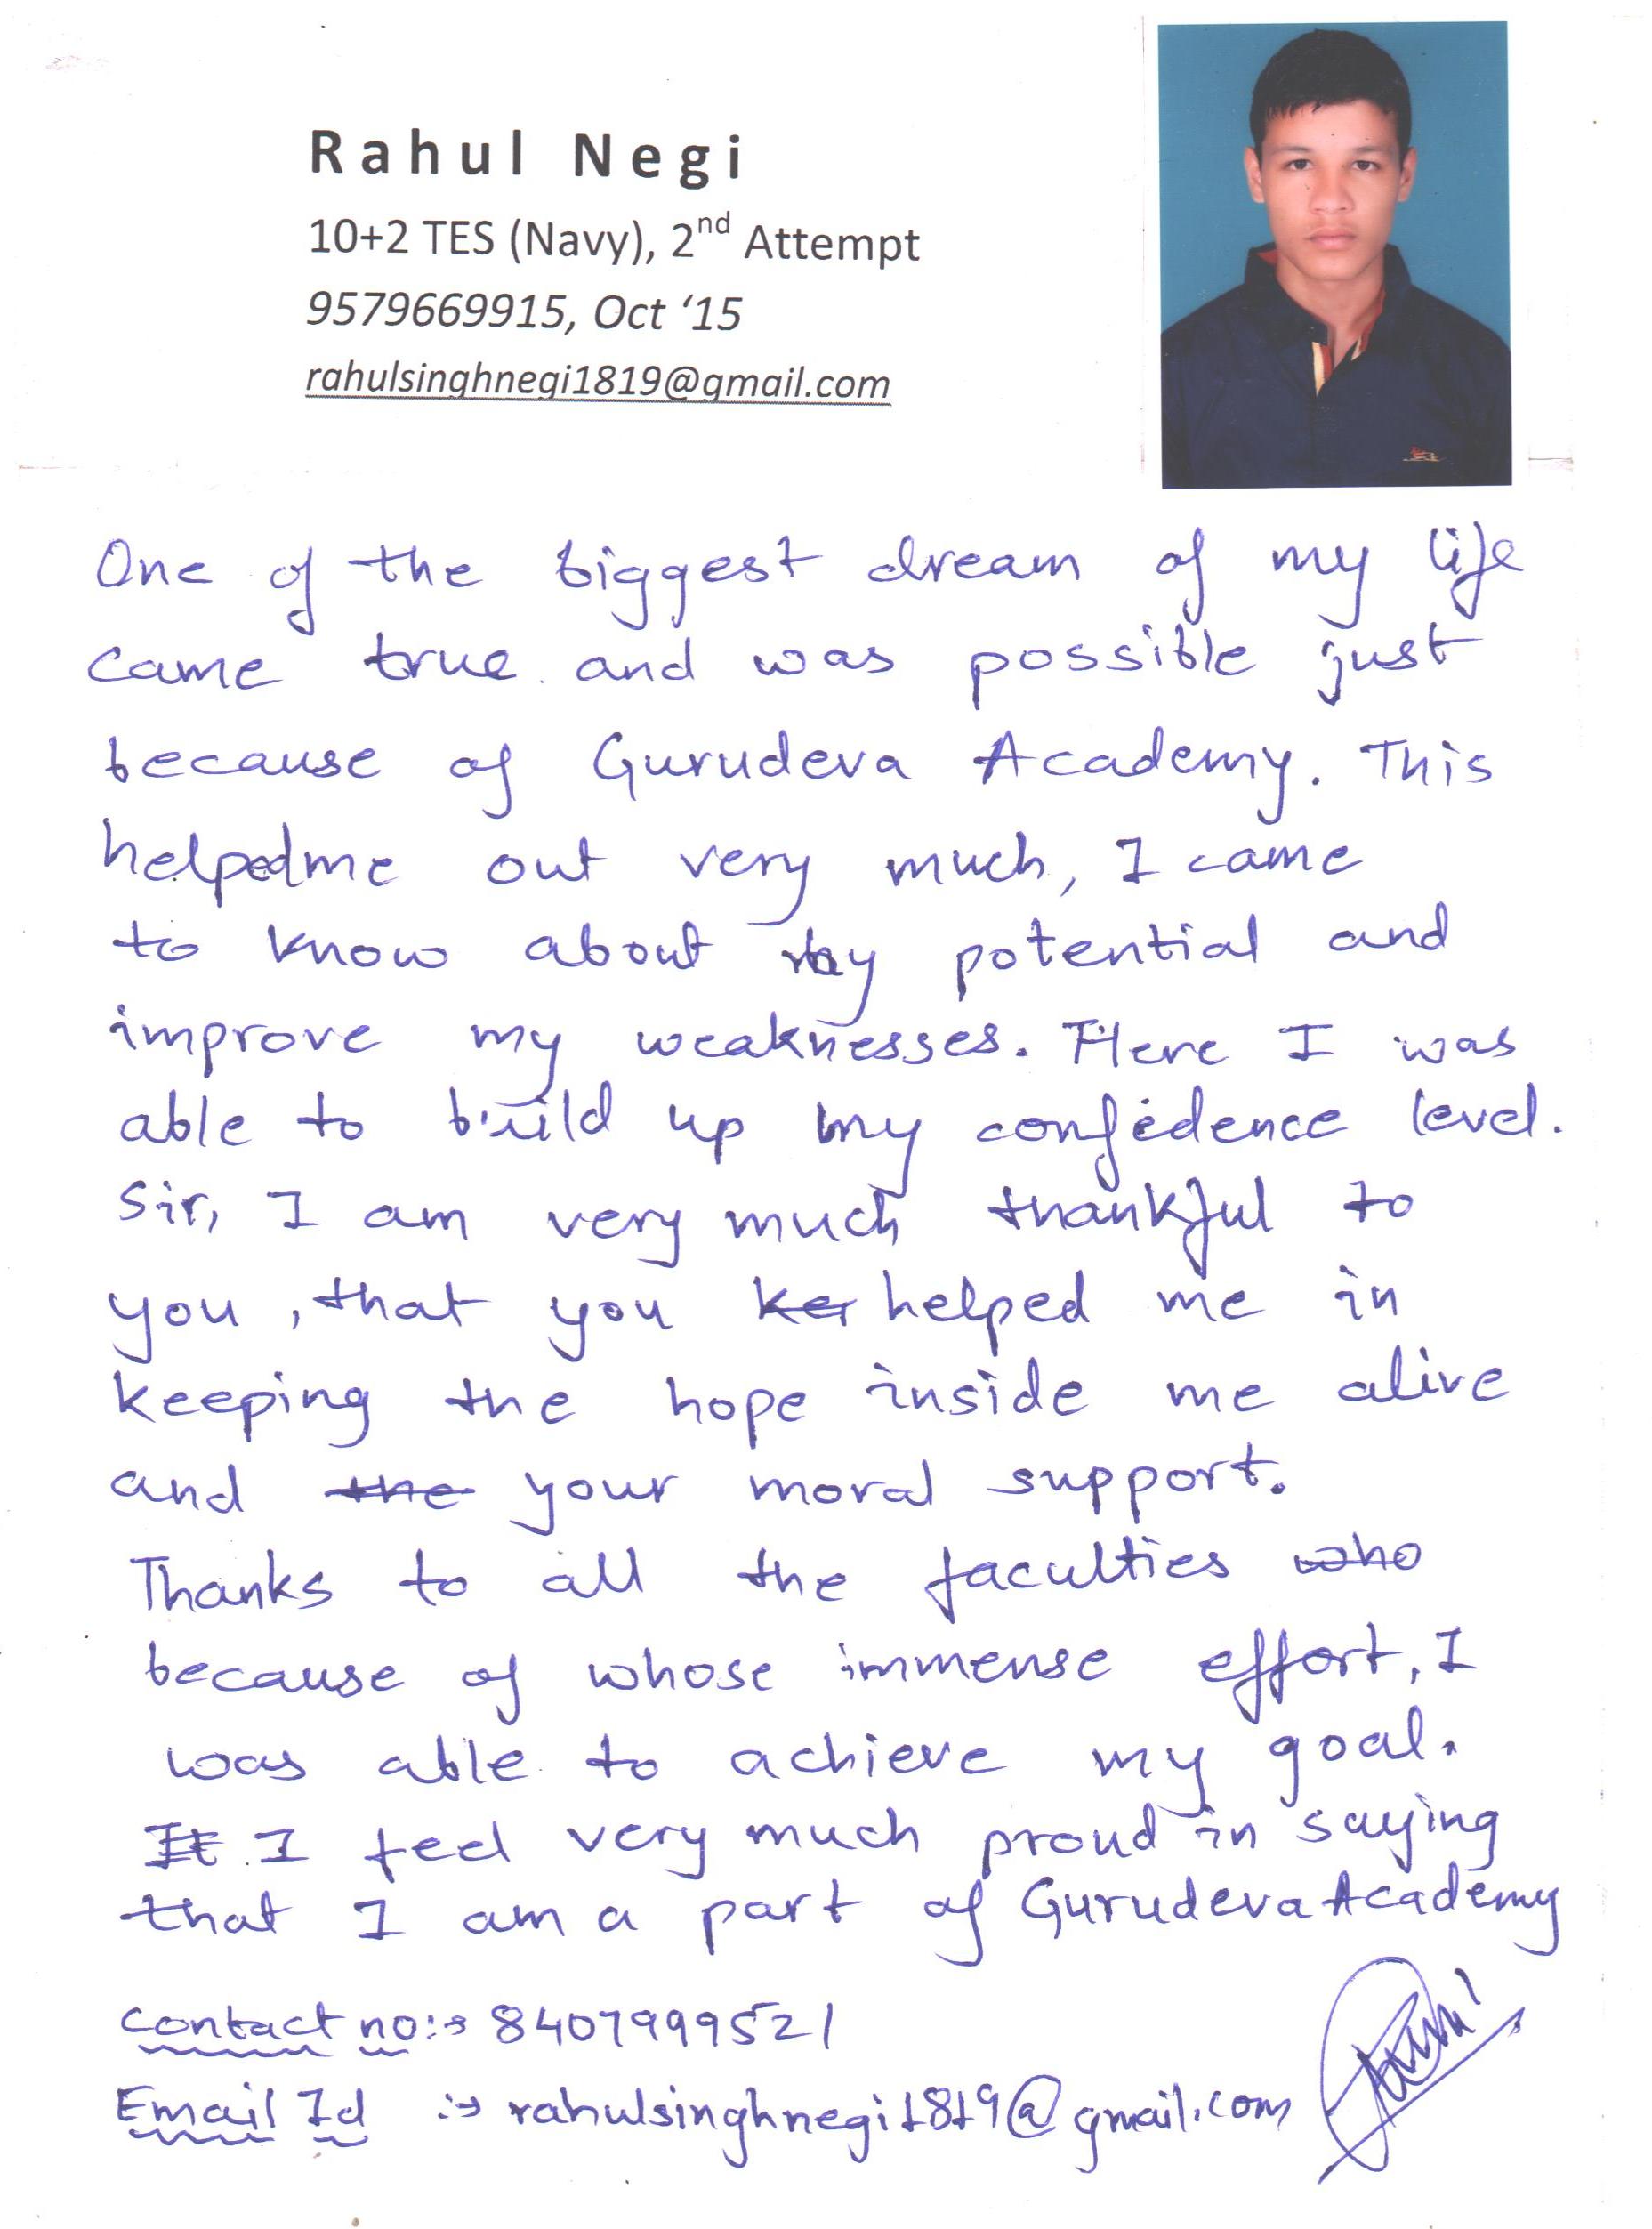 Rahul Negi
10+2 TES (Navy), 2nd Attempt
9579669915, Oct ‘15
rahulsinghnegi1819@gmail.com
One of the biggest dream of my life
came true and was possible just
because of Gurudeva Academy. This
helped me out very much, I came
to know about my potential and
improve my weaknesses. Here I was
able to build up my confidence level.
Sir, I am very much thankful to
you, that you ker helped me in
keeping the hope inside me alive
and the your moral support.
Thanks to all the faculties who
because of whose immense effort, I
was able to achieve my goal.
It I feel very much proud in saying
that I am a part of Gurudeva Academy
Contact no:→ 8407999521
Email Id :→ rahulsinghnegi1819@gmail.com